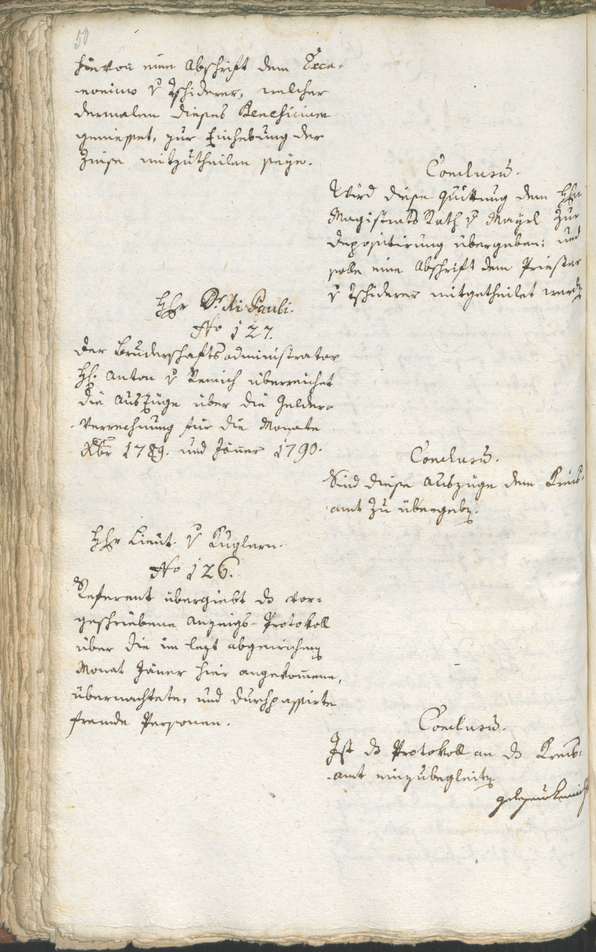 50
hievon eine Abschrift dem Exca-
nonico v Tschiderer, welcher
dermalen dieses Beneficium
geniesset, zur Einhebung der
Zinse mitzutheilen seye.
Conclusum.
Wird diese Quittung dem Hhn
Magistrats Rath v Mayrl zur
Depositirung übergeben: und
solle eine Abschrift dem Priester
v Tschiderer mitgetheilet werden
Hhr Dr. Di Pauli.
No 127.
Der Bruderschaftsadministrator
Hh. Anton v Remich überreichet
die Auszüge über die Gelder-
verrechnung für die Monate
Xber 1789. und Jäner 1790.
Conclusum.
Sind diese Auszüge dem Kreis-
amt zu übergeben.
Hhr Lieut. v Kuglern.
No 126.
Referent übergiebt das vor-
geschriebene Anzeigs-Protokoll
über die im lezt abgewichenen
Monat Jäner hier angekommene,
übernachtete, und durchpassirte
fremde Personen.
Conclusum.
Ist das Protokoll an das Kreis-
amt einzubegleiten